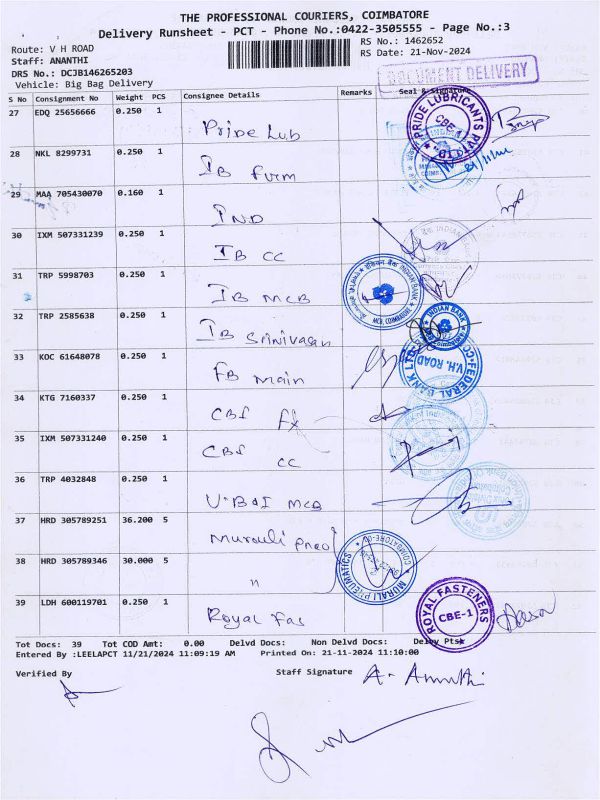 THE PROFESSIONAL COURIERS, COIMBATORE
Delivery Runsheet - PCT - Phone No.:0422-3505555 - Page No.:3
Route: V H ROAD
RS No.: 1462652
Staff: ANANTHI
RS Date: 21-Nov-2024
DRS No.: DCJB146265203
Vehicle: Big Bag Delivery
DOCUMENT DELIVERY
S No Consignment No Weight PCS Consignee Details Remarks Seal & Signature
27 EDQ 25656666 0.250 1 Pride Lub
PRIDE LUBRICANTS PVT LTD. CBE-1
28 NKL 8299731 0.250 1 IB Furm
29 MAA 705430070 0.160 1 IND
30 IXM 507331239 0.250 1 IB CC
31 TRP 5998703 0.250 1 IB MCB
INDIAN BANK MCB, COIMBATORE
32 TRP 2585638 0.250 1 IB Srinivasan
INDIAN BANK
33 KOC 61648078 0.250 1 FB Main
FEDERAL BANK LTD. V.H. ROAD
34 KTG 7160337 0.250 1 CBI Fx
35 IXM 507331240 0.250 1 CBI CC
36 TRP 4032848 0.250 1 U.B&I MCB
37 HRD 305789251 36.200 5 Murauli Pneo
38 HRD 305789346 30.000 5 "
MURALI PNEUMATICS COIMBATORE
39 LDH 600119701 0.250 1 Royal Fas
ROYAL FASTENERS CBE-1
Tot Docs: 39 Tot COD Amt: 0.00 Delvd Docs: Non Delvd Docs: Delby Ptsk
Entered By :LEELAPCT 11/21/2024 11:09:19 AM Printed On: 21-11-2024 11:10:00
Verified By
Staff Signature A. Ananthi